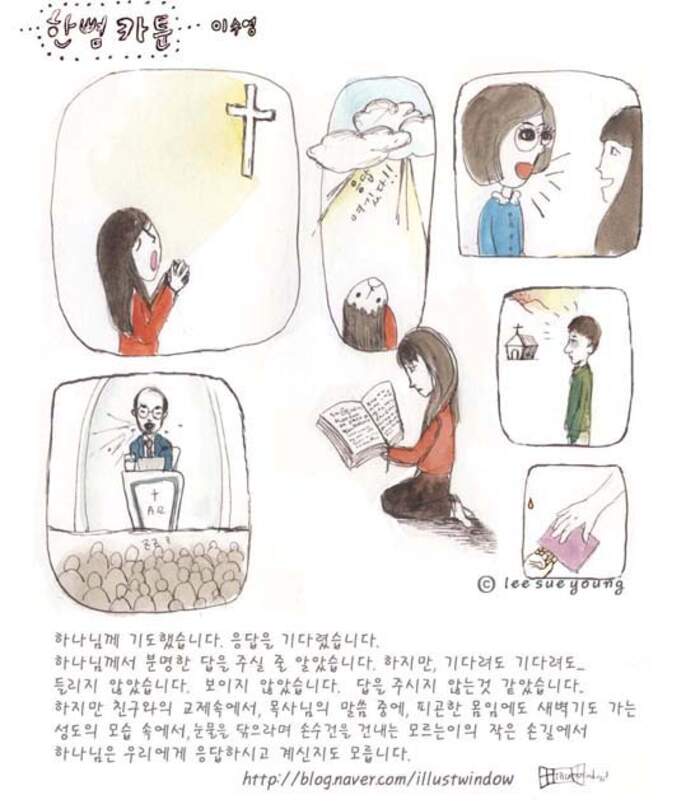 한뼘 카툰 이수영
응답
여깄다!!
zz z
© lee sue young
하나님께 기도했습니다. 응답을 기다렸습니다.
하나님께서 분명한 답을 주실 줄 알았습니다. 하지만, 기다려도 기다려도...
들리지 않았습니다. 보이지 않았습니다. 답을 주시지 않는것 같았습니다...
하지만 친구와의 교제속에서, 목사님의 말씀 중에, 피곤한 몸임에도 새벽기도 가는
성도의 모습 속에서,눈물을 닦으라며 손수건을 건내는 모르는이의 작은 손길에서
하나님은 우리에게 응답하시고 계신지도 모릅니다.
http://blog.naver.com/illustwindow